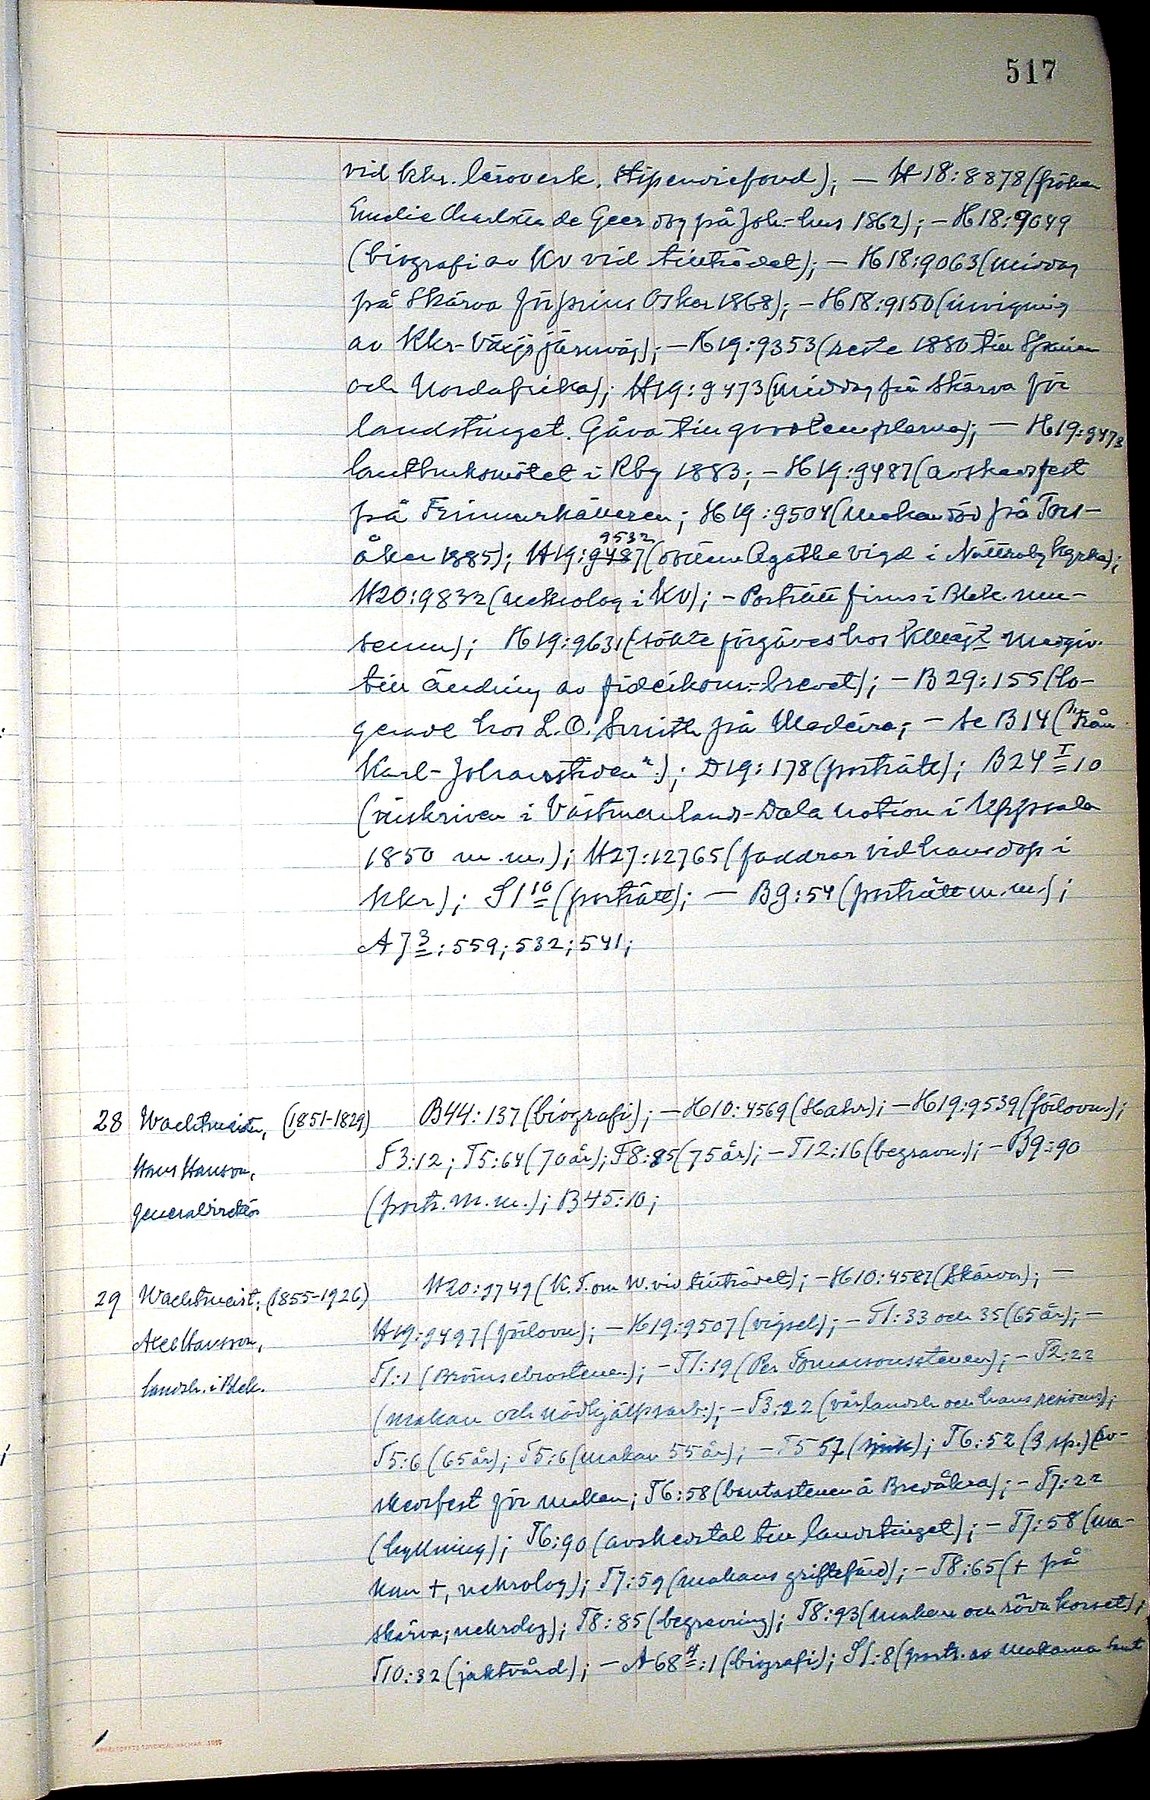 517
vid kkr. läroverk. Stipendiefond); — H18:8878 (fröken
Emelie Charlotta de Geer dog på Joh-hus 1862); — H18:9049
(biografi av KV vid tillträdet); — H18:9063 (middag
på Skärva för prins Oskar 1868); — H18:9150 (invigning
av Kkr-Växjö järnväg); — H19:9353 (reste 1880 till Spanien
och Nordafrika); H19:9473 (middag på Skärva för
landstinget. Gåva till goodtemplarna); — H19:9473
lantbruksmötet i Rby 1883; — H19:9487 (avskedsfest
på Frimurkälleren; H19:9504 (makan död på Tors-
åker 1885); H19:9487 9532 (dottern Agathe vigd i Nättraby kyrka);
H20:9832 (nekrolog i KV); — Porträtt finns i Blek. mu-
seum); H19:9631 (sökte förgäves hos K Maj:t medgiv.
till ändring av fideikom.-brevet); — B29:155 (lo-
gerade hos L.O. Smith på Madeira; — Se B14 ("Från
Karl-Johanstiden"); D19:178 (porträtt); B24 I 10
(inskriven i Västmanlands-Dala nation i Uppsala
1850 m.m.); H27:12765 (faddrar vid hans dop i
Kkr); S1 10 (porträtt); — B9:54 (porträtt m.m.);
A7 3:559; 532; 541;
28 Wachtmeister, (1851-1829) B44:137 (biografi); — H10:4569 (Hahr); — H19:9539 (förlovn.);
Hans Hansson, T3:12; T5:64 (70 år); T8:85 (75 år); — T12:16 (begravn.); — B9:90
generaldirektör (portr. m.m.); B45:10;
29 Wachtmeist. (1855-1926) H20:9749 (K.T. om W. vid tillträdet); — H10:4587 (Skärva); —
Axel Hansson, H19:9497 (förlovn.); — H19:9507 (vigsel); — T1:33 och 35 (65 år); —
landsh. i Blek. T1:1 (Brömsebrostenen); — T1:19 (Per Tomassonsstenen); — T2:22
(makan och nödhjälpsarb.); — T3:22 (vår landsh. och hans residens);
T5:6 (65 år); T5:6 (makan 55 år); — T5 57 (sjuk); T6:52 (3 sp.) (av-
skedsfest för makan; T6:58 (bautastenen å Bredåkra); — T7:22
(hyllning); T6:90 (avskedstal till landstinget); — T7:58 (ma-
kan +, nekrolog); T7:59 (makans griftefärd); — T8:65 (+ på
Skärva; nekrolog); T8:85 (begravning); T8:93 (makan och röda korset);
T10:32 (jaktvård); — A68 4:1 (biografi); S1:8 (portr. av makarna samt